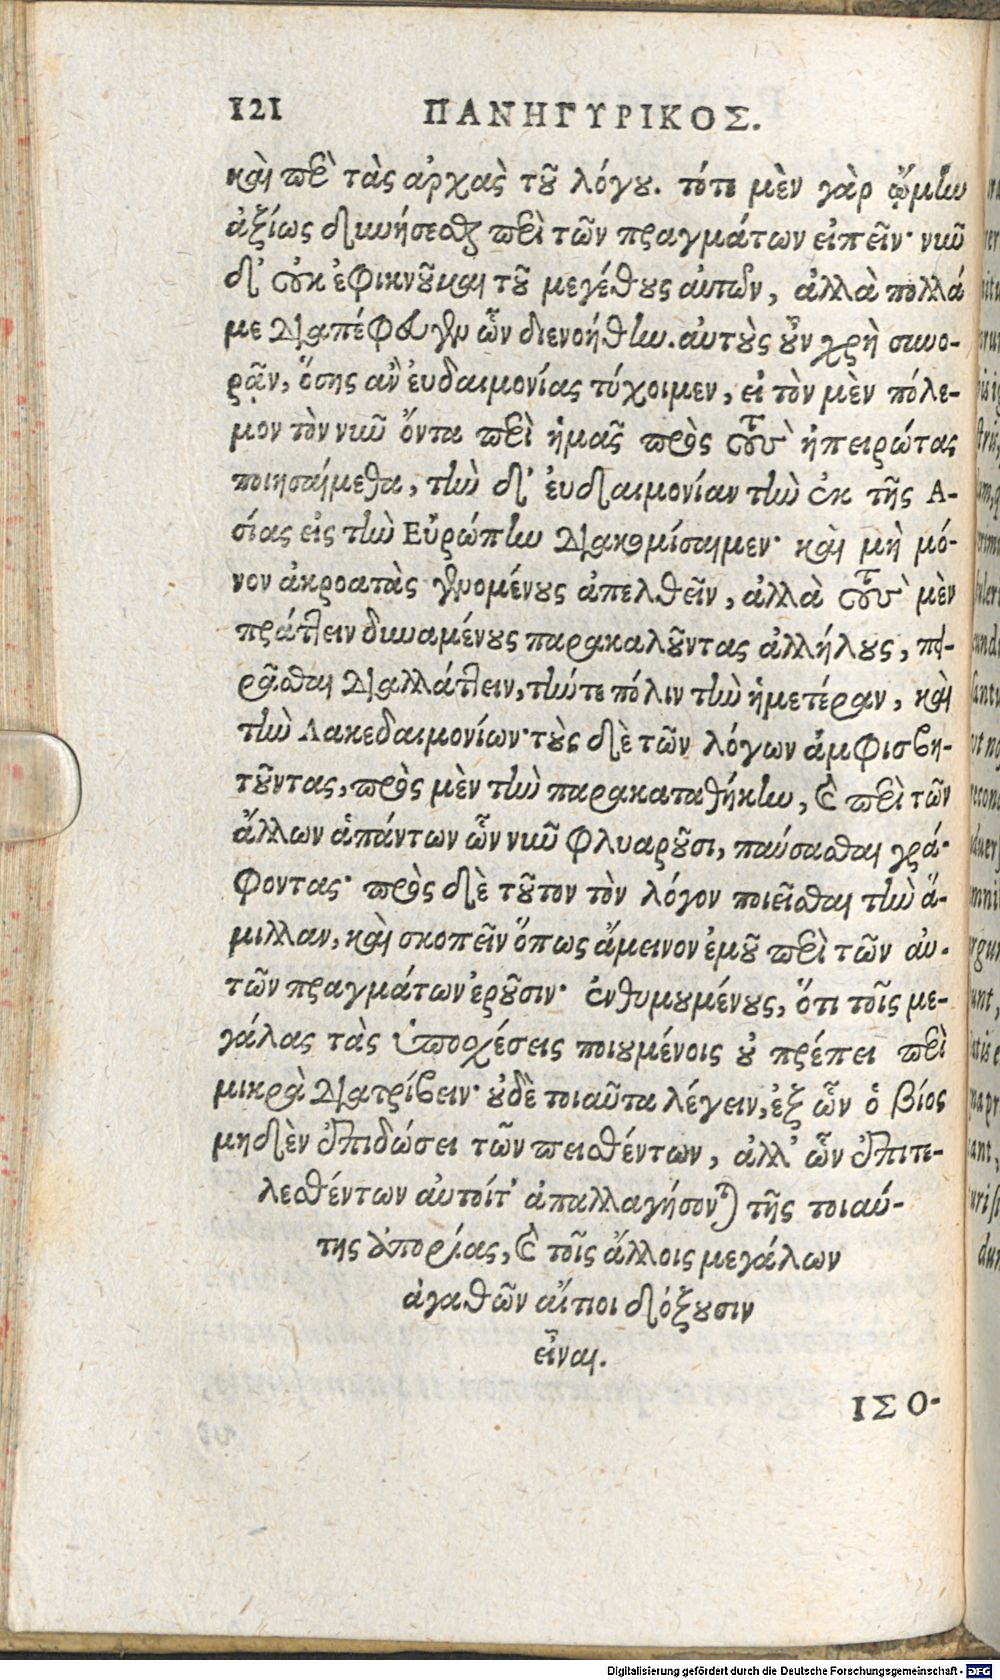 121 ΠΑΝΗΓΥΡΙΚΟΣ.
καὶ περὶ τὰς ἀρχὰς τοῦ λόγου. τότε μὲν γὰρ ᾤμην
ἀξίως δυνήσεσθαι περὶ τῶν πραγμάτων εἰπεῖν· νῦν
δ' οὐκ ἐφικνοῦμαι τοῦ μεγέθους αὐτῶν, ἀλλὰ πολλά
με διαπέφευγεν ὧν διενοήθην. αὐτοὺς οὖν χρὴ συνο-
ρᾷν, ὅσης ἂν εὐδαιμονίας τύχοιμεν, εἰ τὸν μὲν πόλε-
μον τὸν νῦν ὄντα περὶ ἡμᾶς πρὸς τοὺς ἠπειρώτας
ποιησαίμεθα, τὴν δ' εὐδαιμονίαν τὴν ἐκ τῆς Ἀ-
σίας εἰς τὴν Εὐρώπην διακομίσαιμεν· καὶ μὴ μό-
νον ἀκροατὰς γενομένους ἀπελθεῖν, ἀλλὰ τοὺς μὲν
πράττειν δυναμένους παρακαλοῦντας ἀλλήλους, πει-
ρᾶσθαι διαλλάττειν, τήν τε πόλιν τὴν ἡμετέραν, καὶ
τὴν Λακεδαιμονίων· τοὺς δὲ τῶν λόγων ἀμφισβη-
τοῦντας, πρὸς μὲν τὴν παρακαταθήκην, καὶ περὶ τῶν
ἄλλων ἁπάντων ὧν νῦν φλυαροῦσι, παύσασθαι γρά-
φοντας· πρὸς δὲ τοῦτον τὸν λόγον ποιεῖσθαι τὴν ἅ-
μιλλαν, καὶ σκοπεῖν ὅπως ἄμεινον ἐμοῦ περὶ τῶν αὐ-
τῶν πραγμάτων ἐροῦσιν· ἐνθυμουμένους, ὅτι τοῖς με-
γάλας τὰς ὑποσχέσεις ποιουμένοις οὐ πρέπει περὶ
μικρὰ διατρίβειν· οὐδὲ τοιαῦτα λέγειν, ἐξ ὧν ὁ βίος
μηδὲν ἐπιδώσει τῶν πεισθέντων, ἀλλ' ὧν ἐπιτε-
λεσθέντων αὐτοίτ' ἀπαλλαγήσονται τῆς τοιαύ-
της ἀπορίας, καὶ τοῖς ἄλλοις μεγάλων
ἀγαθῶν αἴτιοι δόξουσιν
εἶναι.
ΙΣΟ-
Digitalisierung gefördert durch die Deutsche Forschungsgemeinschaft - DFG